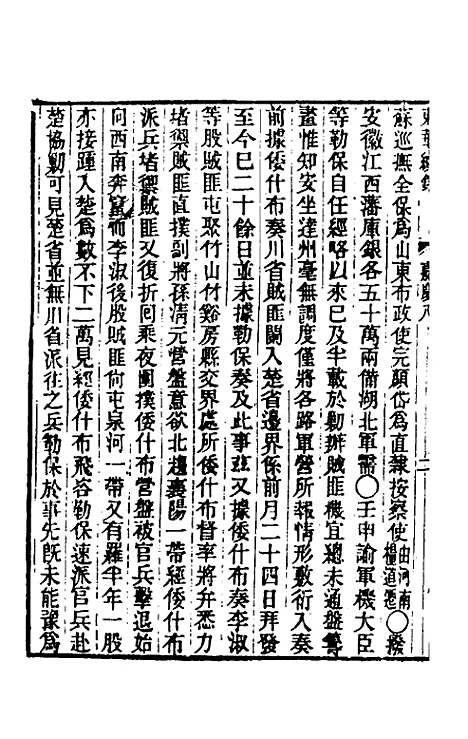 東華續錄 嘉慶八 二
蘇巡撫全保爲山東布政使完顏岱爲直隸按察使由河南糧道遷○撥
安徽江西藩庫銀各五十萬兩備湖北軍需○壬申諭軍機大臣
等勒保自任經略以來已及半載於勦辦賊匪機宜總未通盤籌
畫惟知安坐達州毫無調度僅將各路軍營所報情形敷衍入奏
前據倭什布奏川省賊匪闌入楚省邊界係前月二十四日拜發
至今已二十餘日並未據勒保奏及此事茲又據倭什布奏李淑
等股賊匪屯聚竹山竹谿房縣交界處所倭什布督率將弁悉力
堵禦賊匪直撲副將孫清元營盤意欲北趨襄陽一帶經倭什布
派兵堵禦賊匪又復折回乘夜圍撲倭什布營盤被官兵擊退始
向西南奔竄而李淑後股賊匪尙屯泉河一帶又有羅半年一股
亦接踵入楚爲數不下二萬見經倭什布飛咨勒保速派官兵赴
楚協勦可見楚省並無川省派往之兵勒保於事先旣未能豫爲